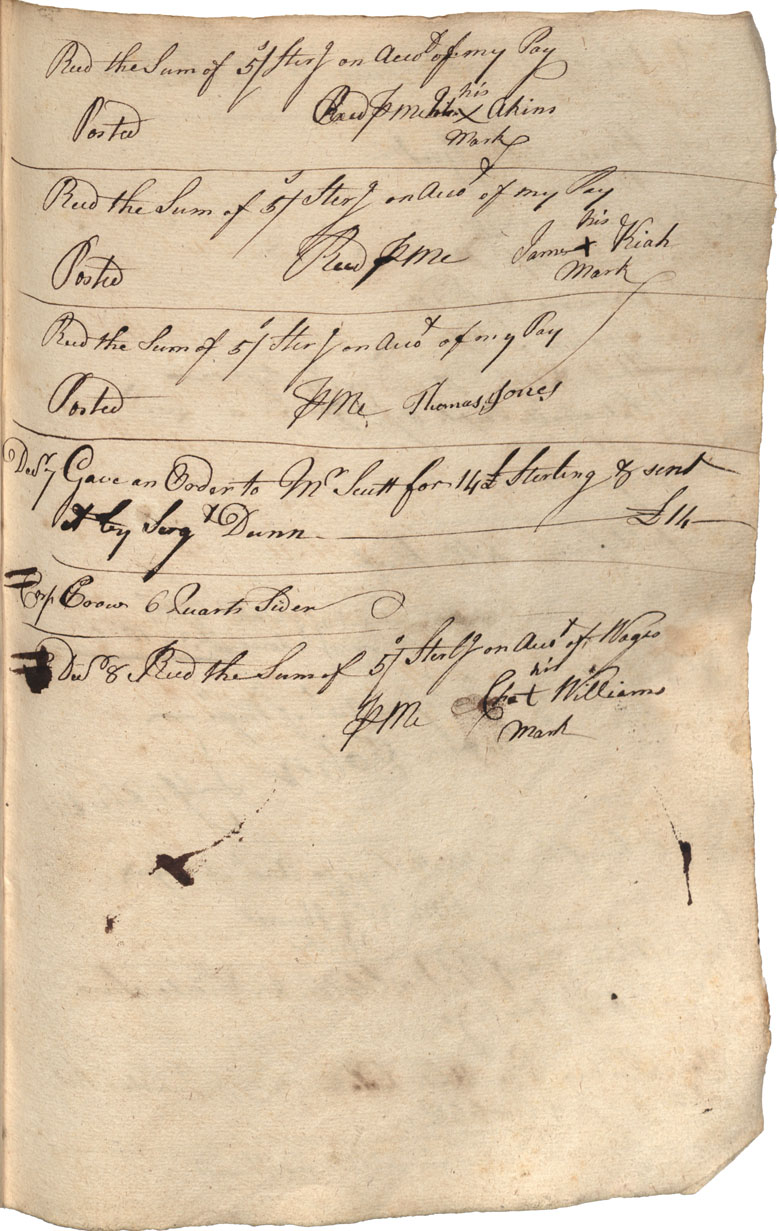 Recd the Sum of 5/ Sterg on Accot of my Pay
his
Posted Recd P Me x Akins
Mark
Recd the Sum of 5/ Sterg on Accot of my Pay
his
Posted Recd P Me James x Kiah
Mark
Recd the Sum of 5/ Sterg on Accot of my Pay
Posted P Me Thomas Jones
Decr 7 Gave an Order to Mr Scutt for 14£ Sterling & sent
it by Sergt Dunn £14
Crow 6 Quarts Sider
Decr 8 Recd the Sum of 5/ Sterlg on Accot of Wages
his
P Me x Williams
Mark